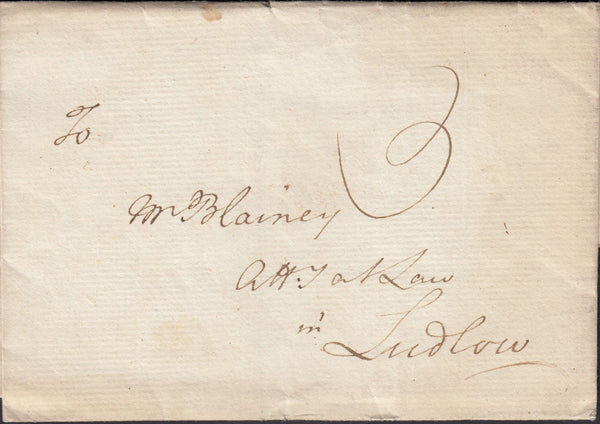 To
3
Mr Blainey
Att:y at Law
in
Ludlow